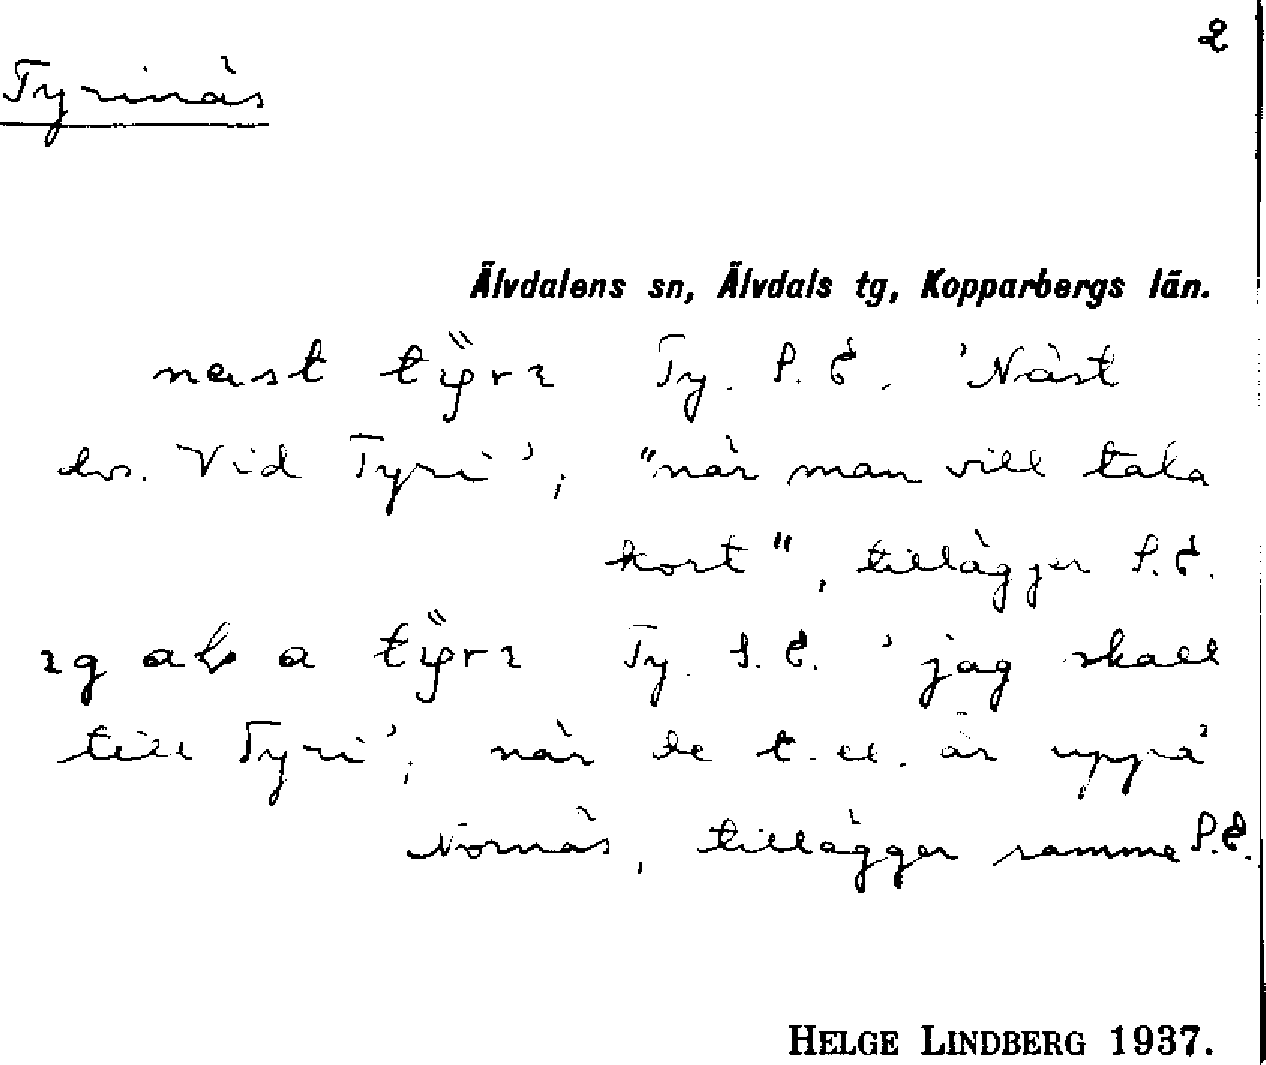 2
Tyrinäs
Älvdalens sn, Älvdals tg, Kopparbergs län.
Ty. P. E. 'Näst
Vid Tyri'; "när man vill tala
kort", tillägger P.E.
a Ty. P. E. 'jag skall
till Tyri', när de t. ex. är uppå
Nornäs, tillägger samme P.E.
HELGE LINDBERG 1937.